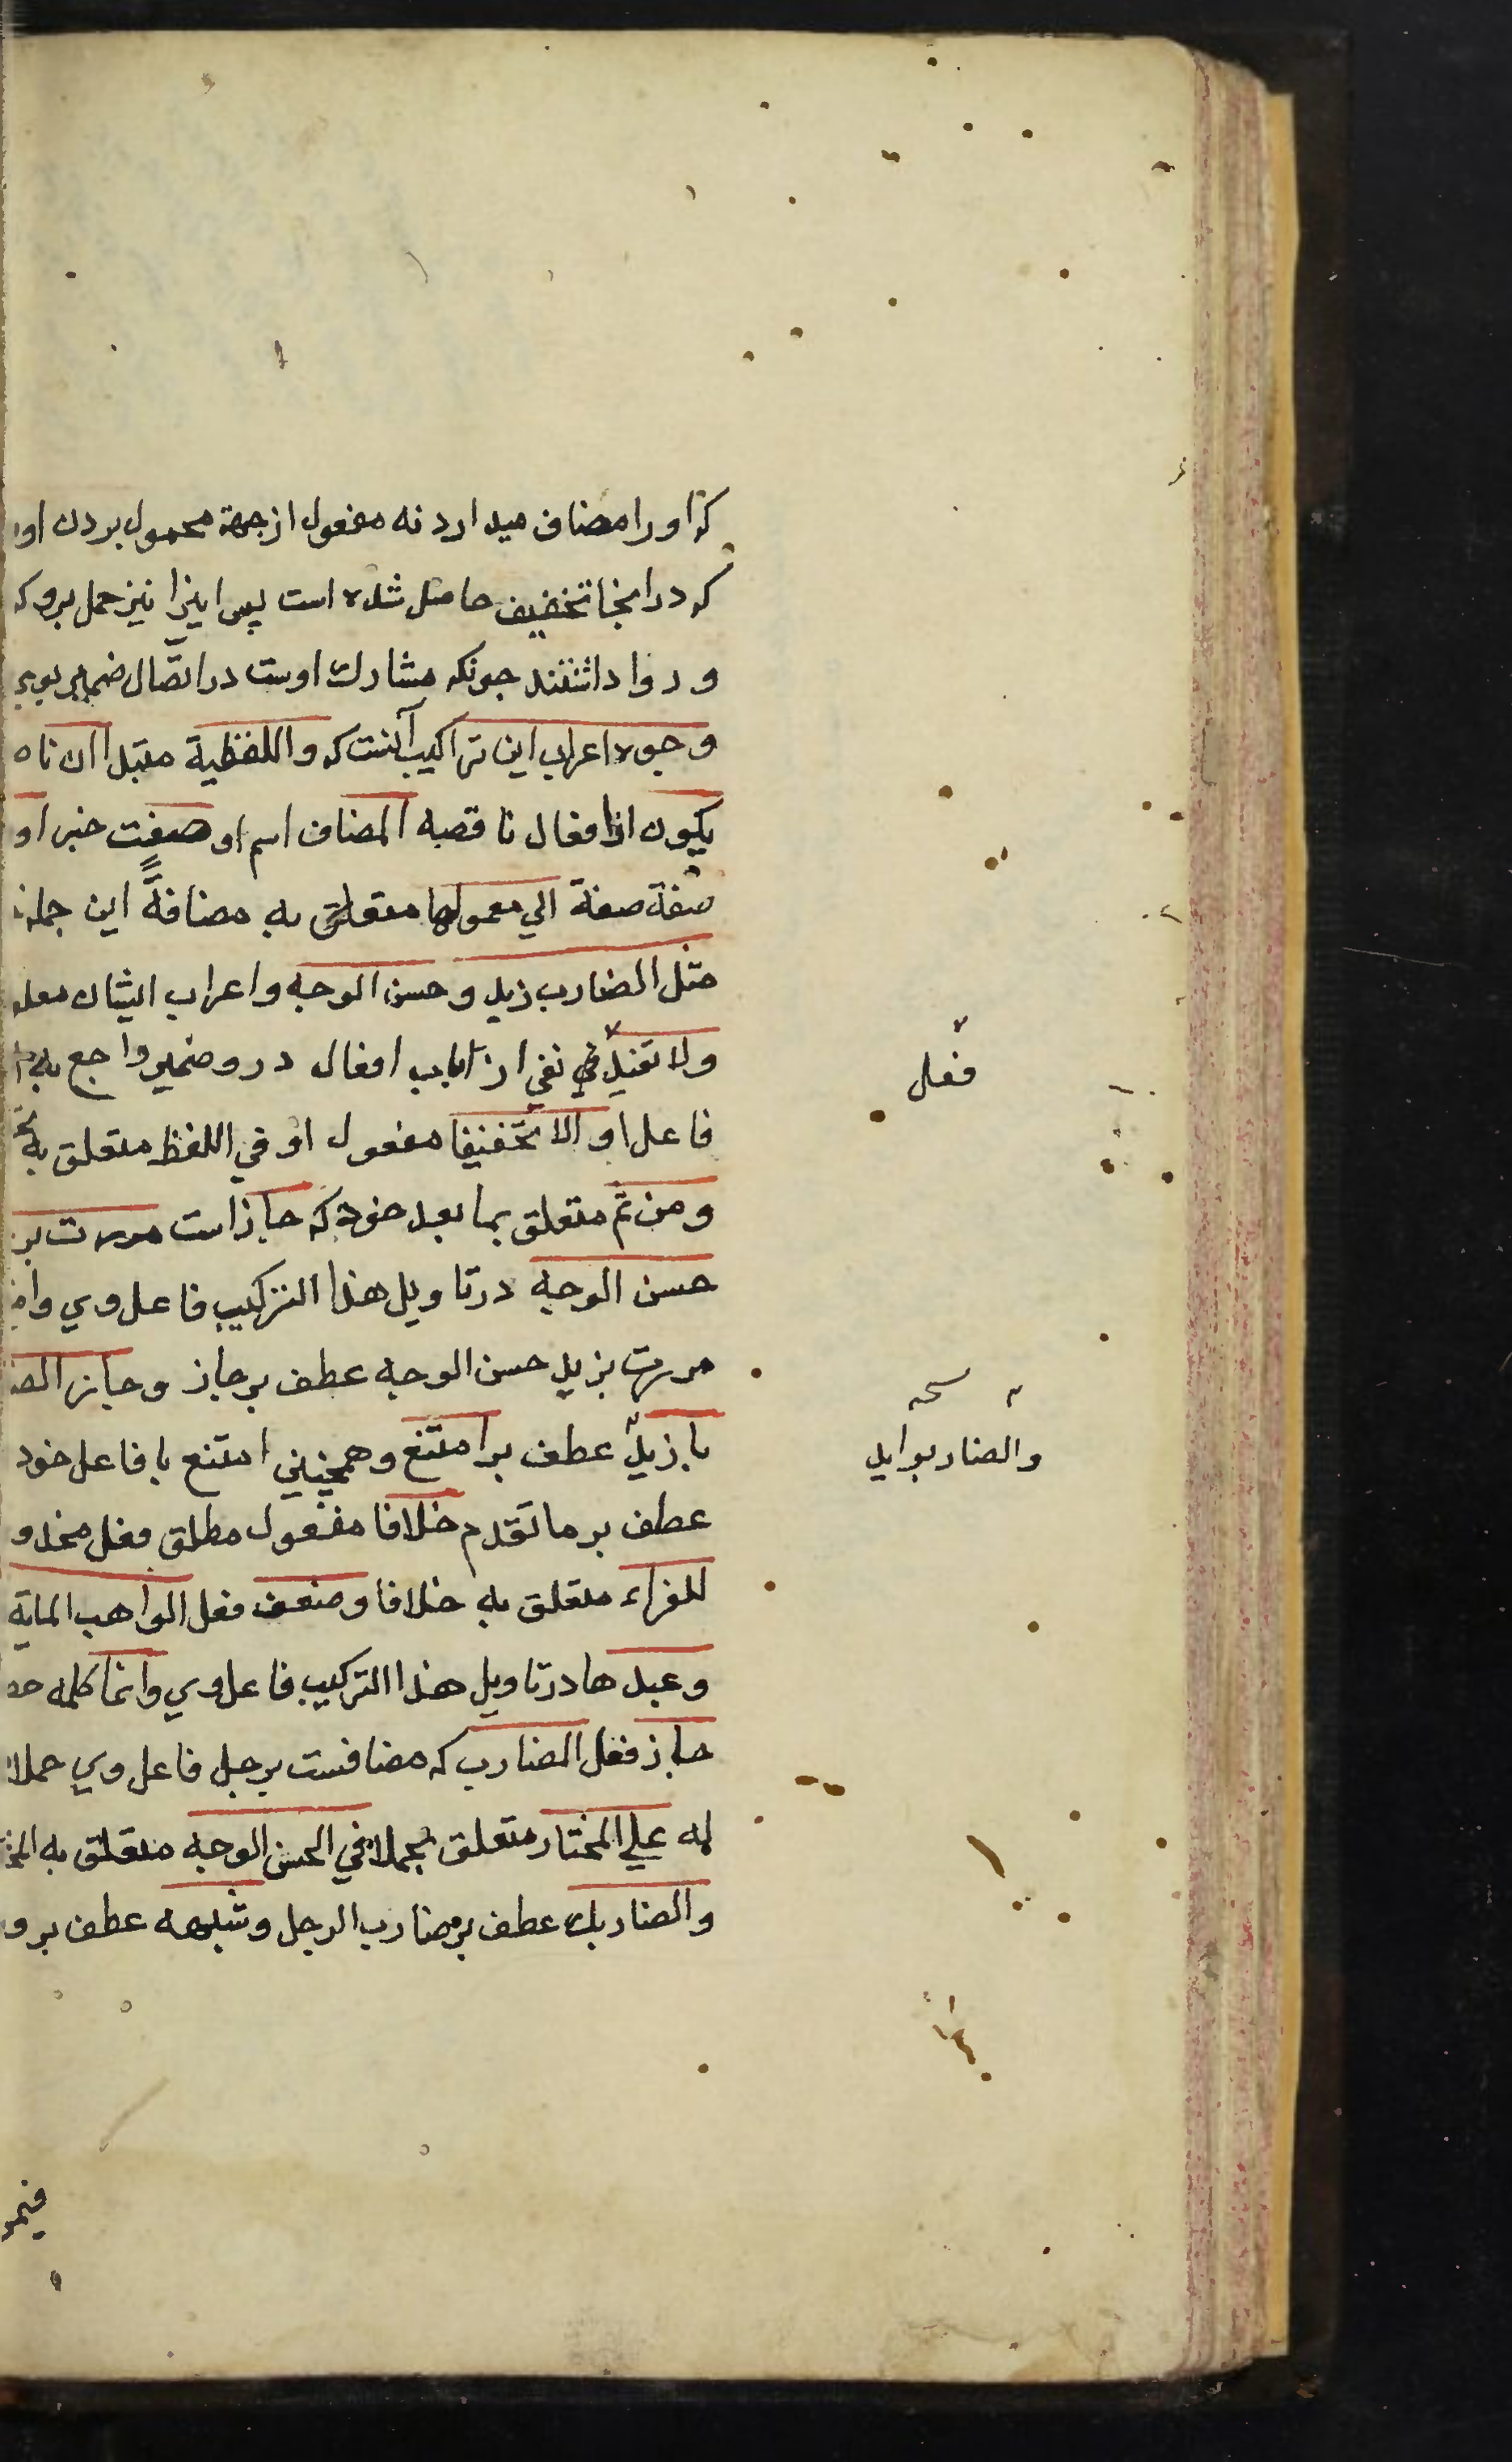 که اورا مضاف میدارد نه مفعول از جهة محمول بردن او
که در اینجا تخفیف حاصل شده است پس اینرا نیز حمل برو که
و روا داشتند جونکه مشارك اوست در اتّصال ضمایر بوی
وجوه اعراب این تراکیب آنست که واللفظیة مبتدا ان نا
یکون از افعال ناقصه المضاف اسم او صفت خبر او
صفة صفة الي معمولها متعلق به مضافةً این جمله
مثل الضارب زید وحسن الوجه واعراب ایشان معلو
ولا تفید في نفي از باب افعال درو ضمیر راجع به
فعل
فاعل او الا تخفیفا مفعول او في اللفظ متعلق به
ومن ثم متعلق بما بعد خود که جاز است مررت بر
حسن الوجه در تاویل هذا الترکیب فاعل وي وا
مررت بزید حسن الوجه عطف برجاز وجاز الضا
نسخه
والضاربوا زید
با زیدٌ عطف بر امتنع وهمچنین امتنع با فاعل خود
عطف بر ما تقدم خلافا مفعول مطلق فعل محذو
للفراء متعلق به خلافا وضعف فعل الواهب المایة
وعبدها در تاویل هذا الترکیب فاعل وي وانما کلمه حصر
جاز فعل الضارب که مضافست برجل فاعل وي حملا
له علي المختار متعلق بحملا في الحسن الوجه متعلق به المخ
والضاربك عطف بر ضارب الرجل وشبهه عطف برو